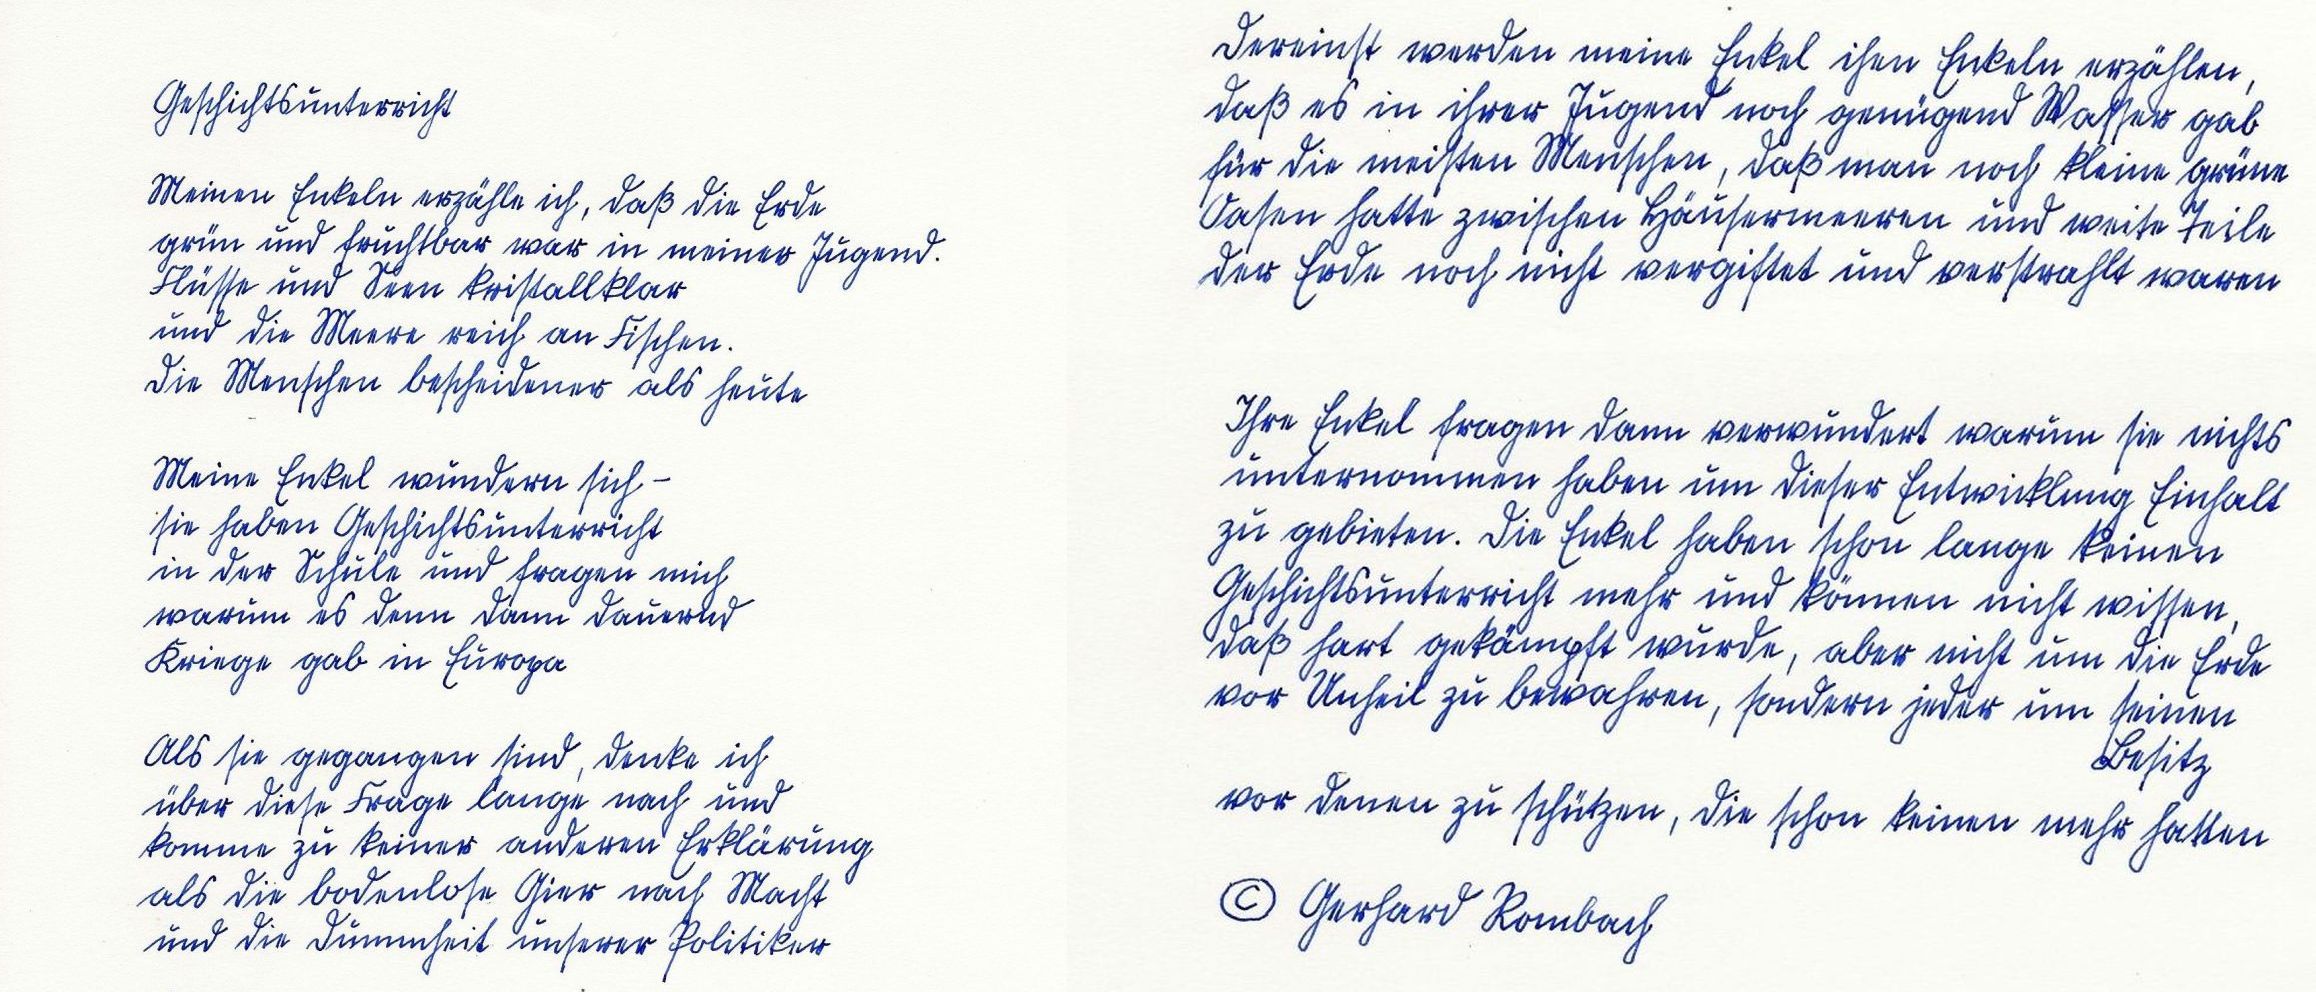 Geschichtsunterricht
Meinen Enkeln erzähle ich, daß die Erde
grün und fruchtbar war in meiner Jugend.
Flüsse und Seen kristallklar
und die Meere reich an Fischen.
Die Menschen bescheidener als heute
Meine Enkel wundern sich –
sie haben Geschichtsunterricht
in der Schule und fragen mich
warum es denn dann dauernd
Kriege gab in Europa
Als sie gegangen sind, denke ich
über diese Frage lange nach und
komme zu keiner anderen Erklärung
als die bodenlose Gier nach Macht
und die Dummheit unserer Politiker
Dereinst werden meine Enkel ihen Enkeln erzählen,
daß es in ihrer Jugend noch genügend Wasser gab
für die meisten Menschen, daß man noch kleine grüne
Oasen hatte zwischen Häusermeeren und weite Teile
der Erde noch nicht vergiftet und verstrahlt waren
Ihre Enkel fragen dann verwundert warum sie nichts
unternommen haben um dieser Entwicklung Einhalt
zu gebieten. Die Enkel haben schon lange keinen
Geschichtsunterricht mehr und können nicht wissen,
daß hart gekämpft wurde, aber nicht um die Erde
vor Unheil zu bewahren, sondern jeder um seinen
Besitz
vor denen zu schützen, die schon keinen mehr hatten
© Gerhard Rombach